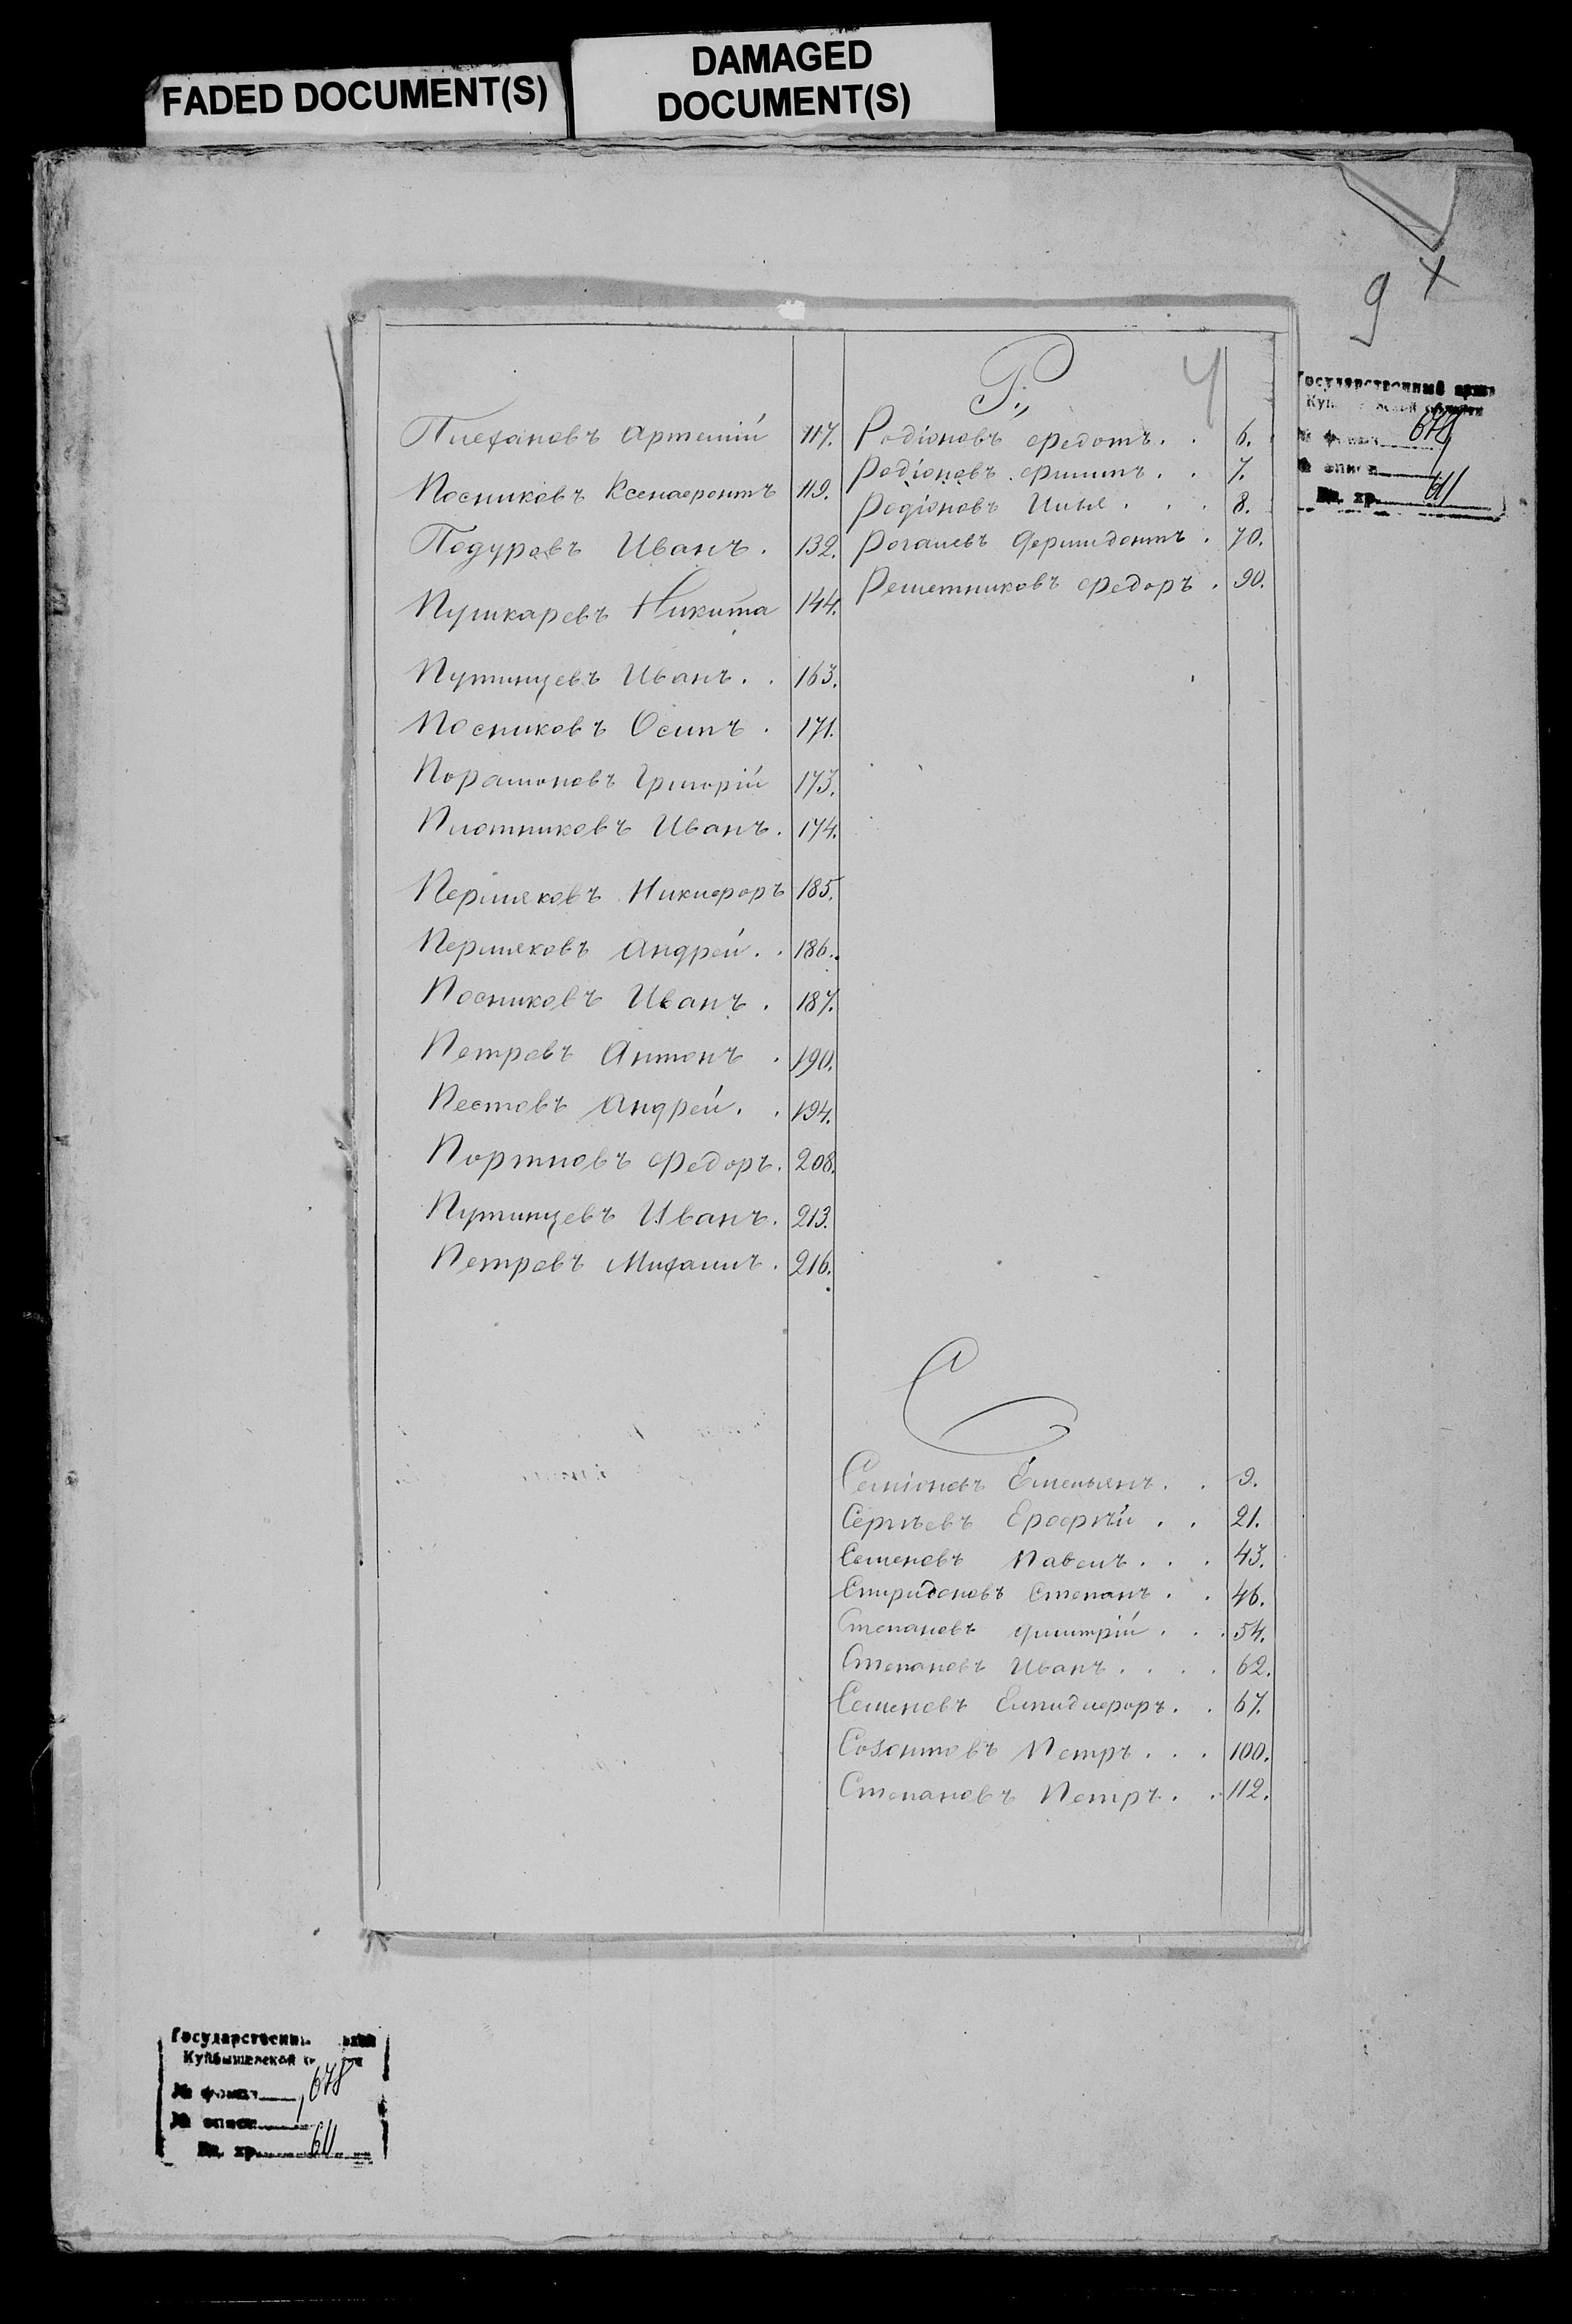 FADED DOCUMENT(S)
DAMAGED
DOCUMENT(S)
9
4
Плехановъ Артемій 117.
Посниковъ Ксенофонтъ 119.
Подуровъ Иванъ. 132.
Пушкаревъ Никита 144.
Путинцевъ Иванъ. . 163.
Посниковъ Осипъ. 171.
Порамоновъ Григорій 173.
Плотниковъ Иванъ. 174.
Пермяковъ Никифоръ 185.
Пермяковъ Андрей. . 186.
Посниковъ Иванъ. 187.
Петровъ Антонъ. 190.
Пестовъ Андрей. . 194.
Портновъ Федоръ. 208.
Путинцевъ Иванъ. 213.
Петровъ Михаилъ. 216.
Р.
Родіоновъ Федотъ. . 6.
Родіоновъ Филипъ. . 7.
Родіоновъ Илья . . . 8.
Рогачевъ Ферапонтъ. 70.
Решетниковъ Федоръ. 90.
С
Семіоновъ Емельянъ. . 9.
Сергѣевъ Ерофѣй . . 21.
Семеновъ Павелъ. . . 43.
Спиридоновъ Степанъ. . 46.
Степановъ Димитрій. . . 54.
Степановъ Иванъ. . . . 62.
Семеновъ Елпидифоръ. . 67.
Созонтовъ Петръ. . . 100.
Степановъ Петръ. . 112.
Государственный архив
Куйбышевской области
№ фонда 678
№ описи
Ед. хр.
Государственный архив
Куйбышевской области
№ фонда 678
№ описи
Ед. хр.